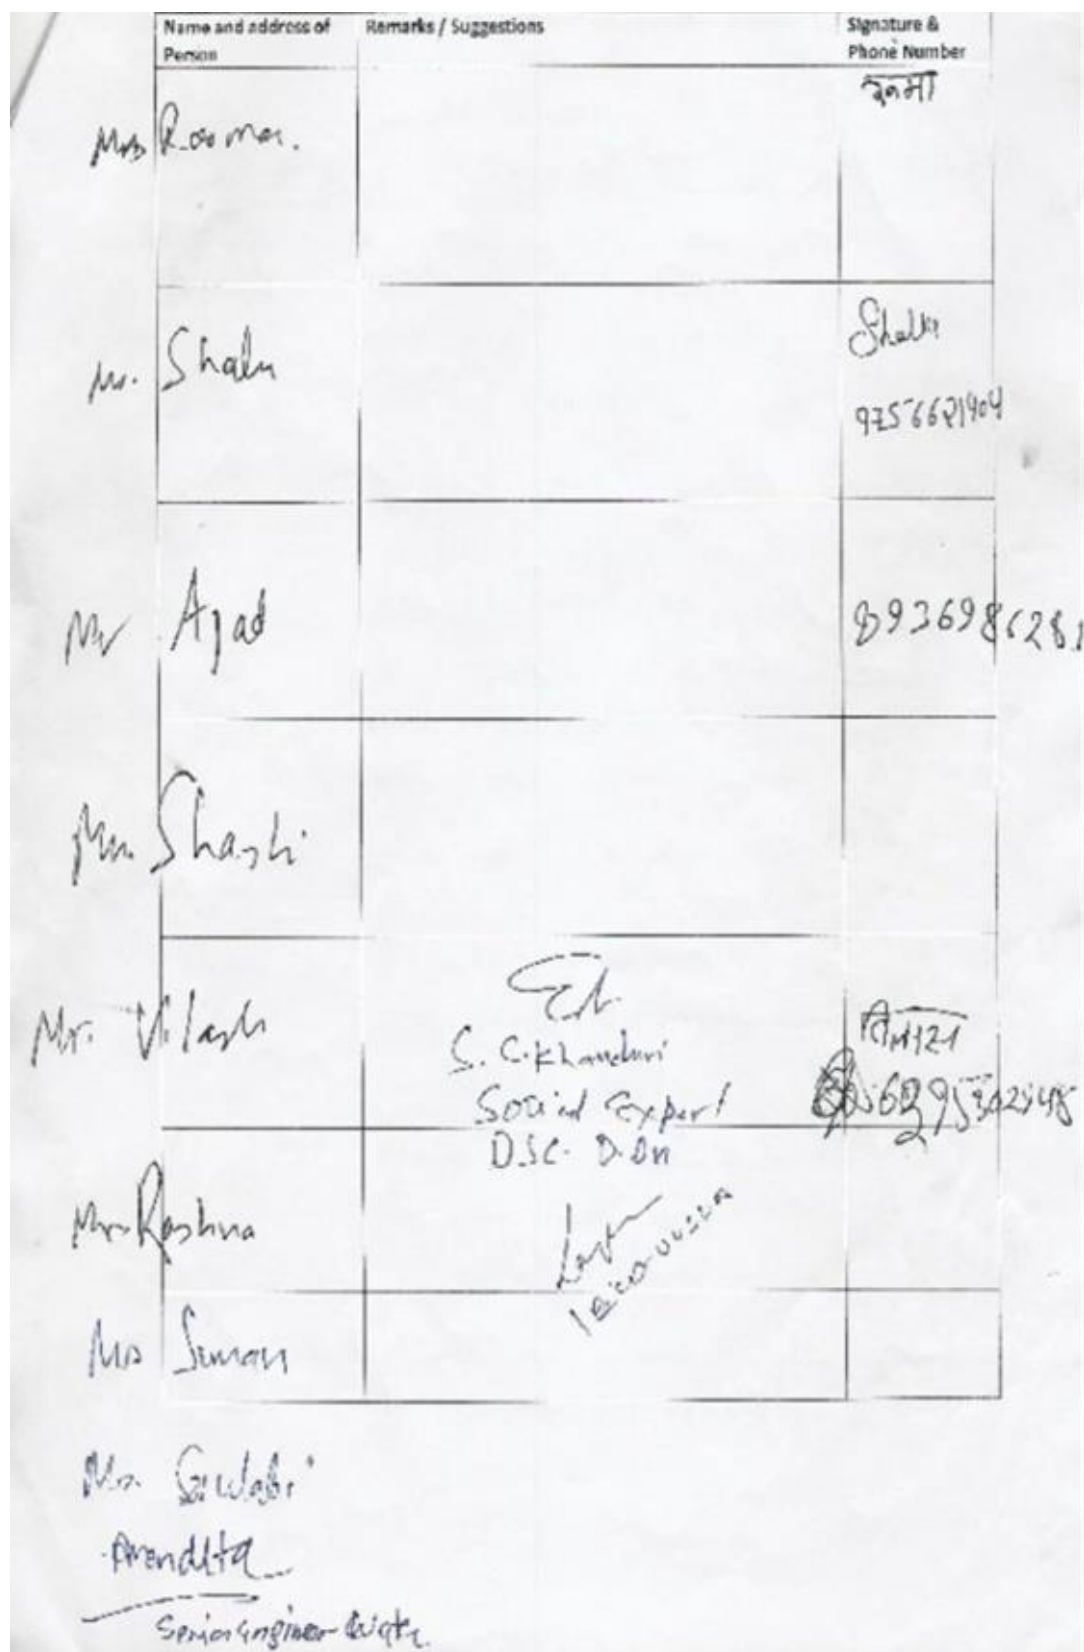 Name and address of Person
Remarks / Suggestions
Signature & Phone Number
Mrs Rooma.
रूमा
Mr. Shalu
Shalu
9756621904
Mr Azad
8936986281
Mrs. Shashi
Mr. Vilash
S. C. Khanduri
Social Expert
D.S.C. D.Dn
Mrs Roshna
Mrs Suman
Mrs.
Anendita
Senior Engineer